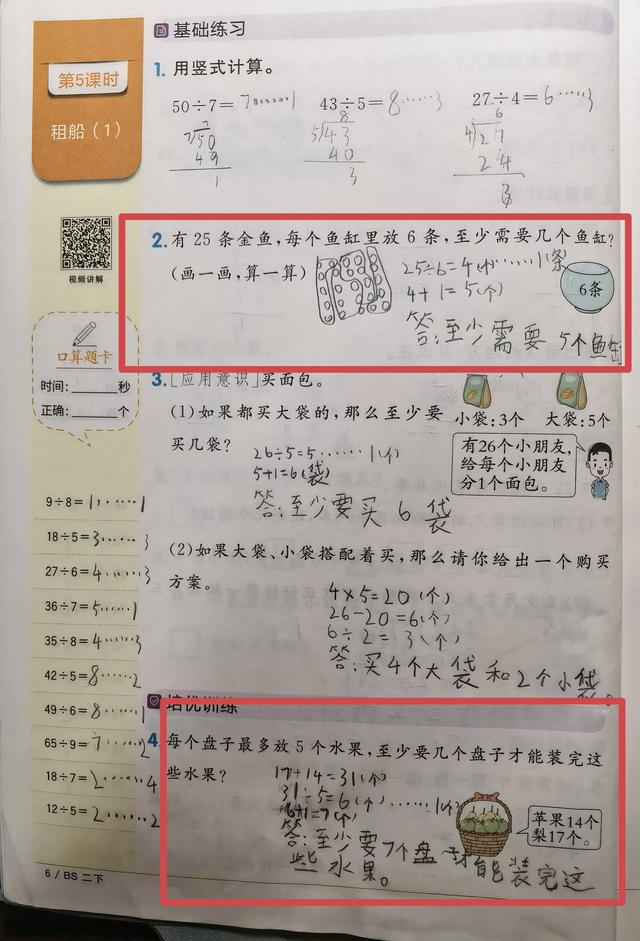 基础练习
第5课时
租船（1）
1. 用竖式计算。
50÷7=7……1 43÷5=8……3 27÷4=6……3
7 8 6
7 50 5 43 4 27
49 40 24
1 3 3
视频讲解
2. 有 25 条金鱼，每个鱼缸里放 6 条，至少需要几个鱼缸？
（画一画，算一算）
25÷6=4(个)……1(条)
4+1=5(个)
6条
答：至少需要 5个鱼缸
口算题卡
时间：______秒
正确：______个
3. [应用意识]买面包。
（1）如果都买大袋的，那么至少要
买几袋？
小袋：3个 大袋：5个
26÷5=5……1(个)
5+1=6(袋)
答：至少要买 6 袋
有26个小朋友，
给每个小朋友
分1个面包。
（2）如果大袋、小袋搭配着买，那么请你给出一个购买
方案。
4×5=20(个)
26-20=6(个)
6÷2=3(个)
答：买4个大袋和2个小袋。
9÷8=1……1
18÷5=3……3
27÷6=4……3
36÷7=5……1
35÷8=4……3
42÷5=8……2
49÷6=8……1
65÷9=7……2
18÷7=2……4
12÷5=2……2
培优训练
4. 每个盘子最多放 5 个水果，至少要几个盘子才能装完这
些水果？
17+14=31(个)
31÷5=6(个)……1(个)
6+1=7(个)
答：至少要7个盘才能装完这
些水果。
苹果14个
梨17个。
6 / BS 二下